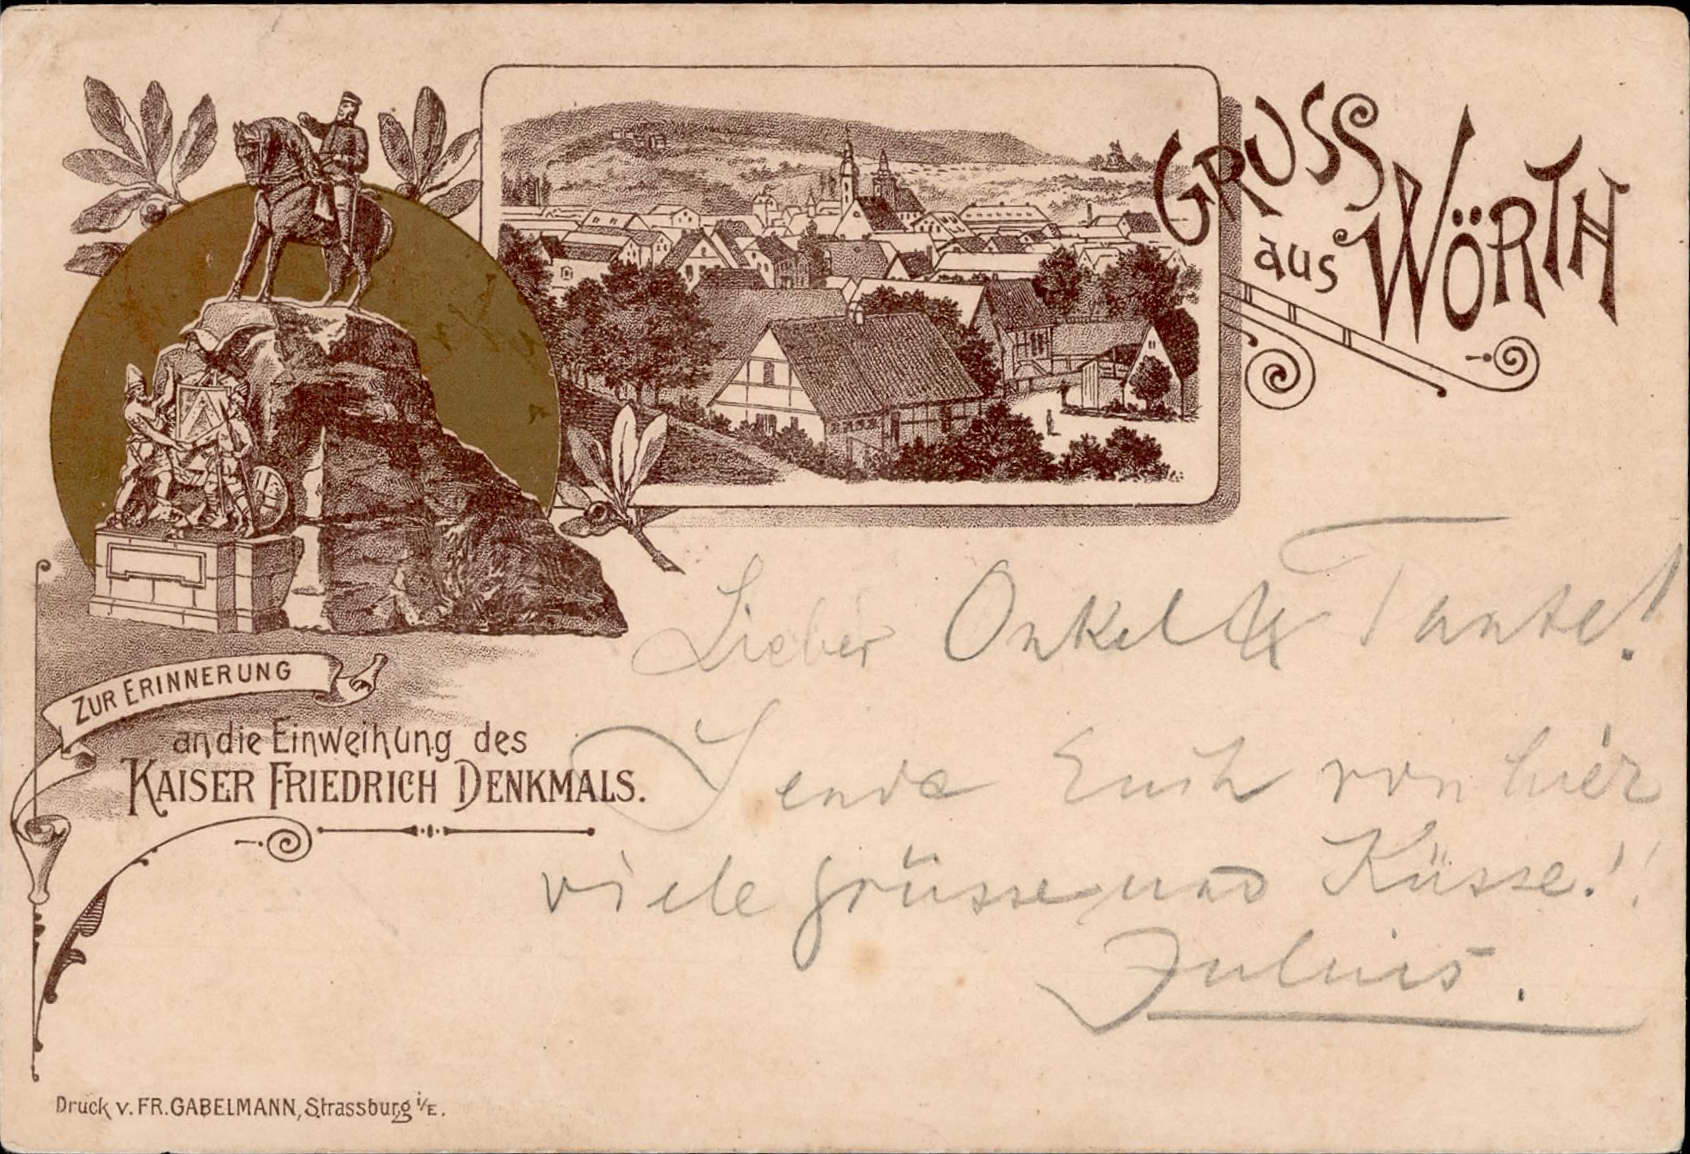 GRUSS
aus WÖRTH
ZUR ERINNERUNG
an die Einweihung des
KAISER FRIEDRICH DENKMALS.
Lieber Onkel & Tante!
Sende Euch von hier
viele grüsse und Küsse!!
Julius.
Druck v. FR. GABELMANN, Strassburg i/E.